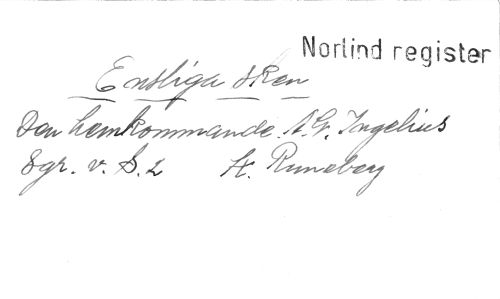 Norlind register
Ensliga sken
Den hemkommande. A.G. Ingelius
Sgr. v. S. 2 Fr. Runeberg